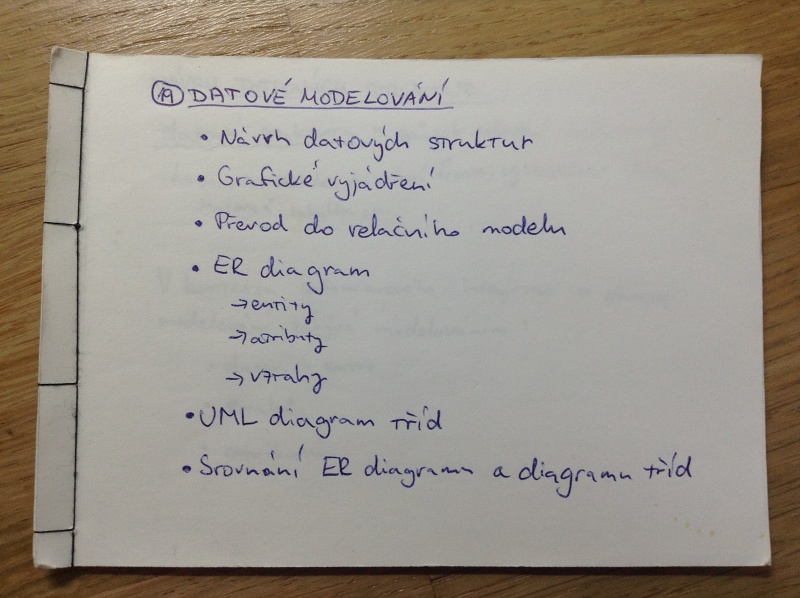 19 DATOVÉ MODELOVÁNÍ
• Návrh datových struktur
• Grafické vyjádření
• Převod do relačního modelu
• ER diagram
→ entity
→ atributy
→ vztahy
• UML diagram tříd
• Srovnání ER diagramu a diagramu tříd